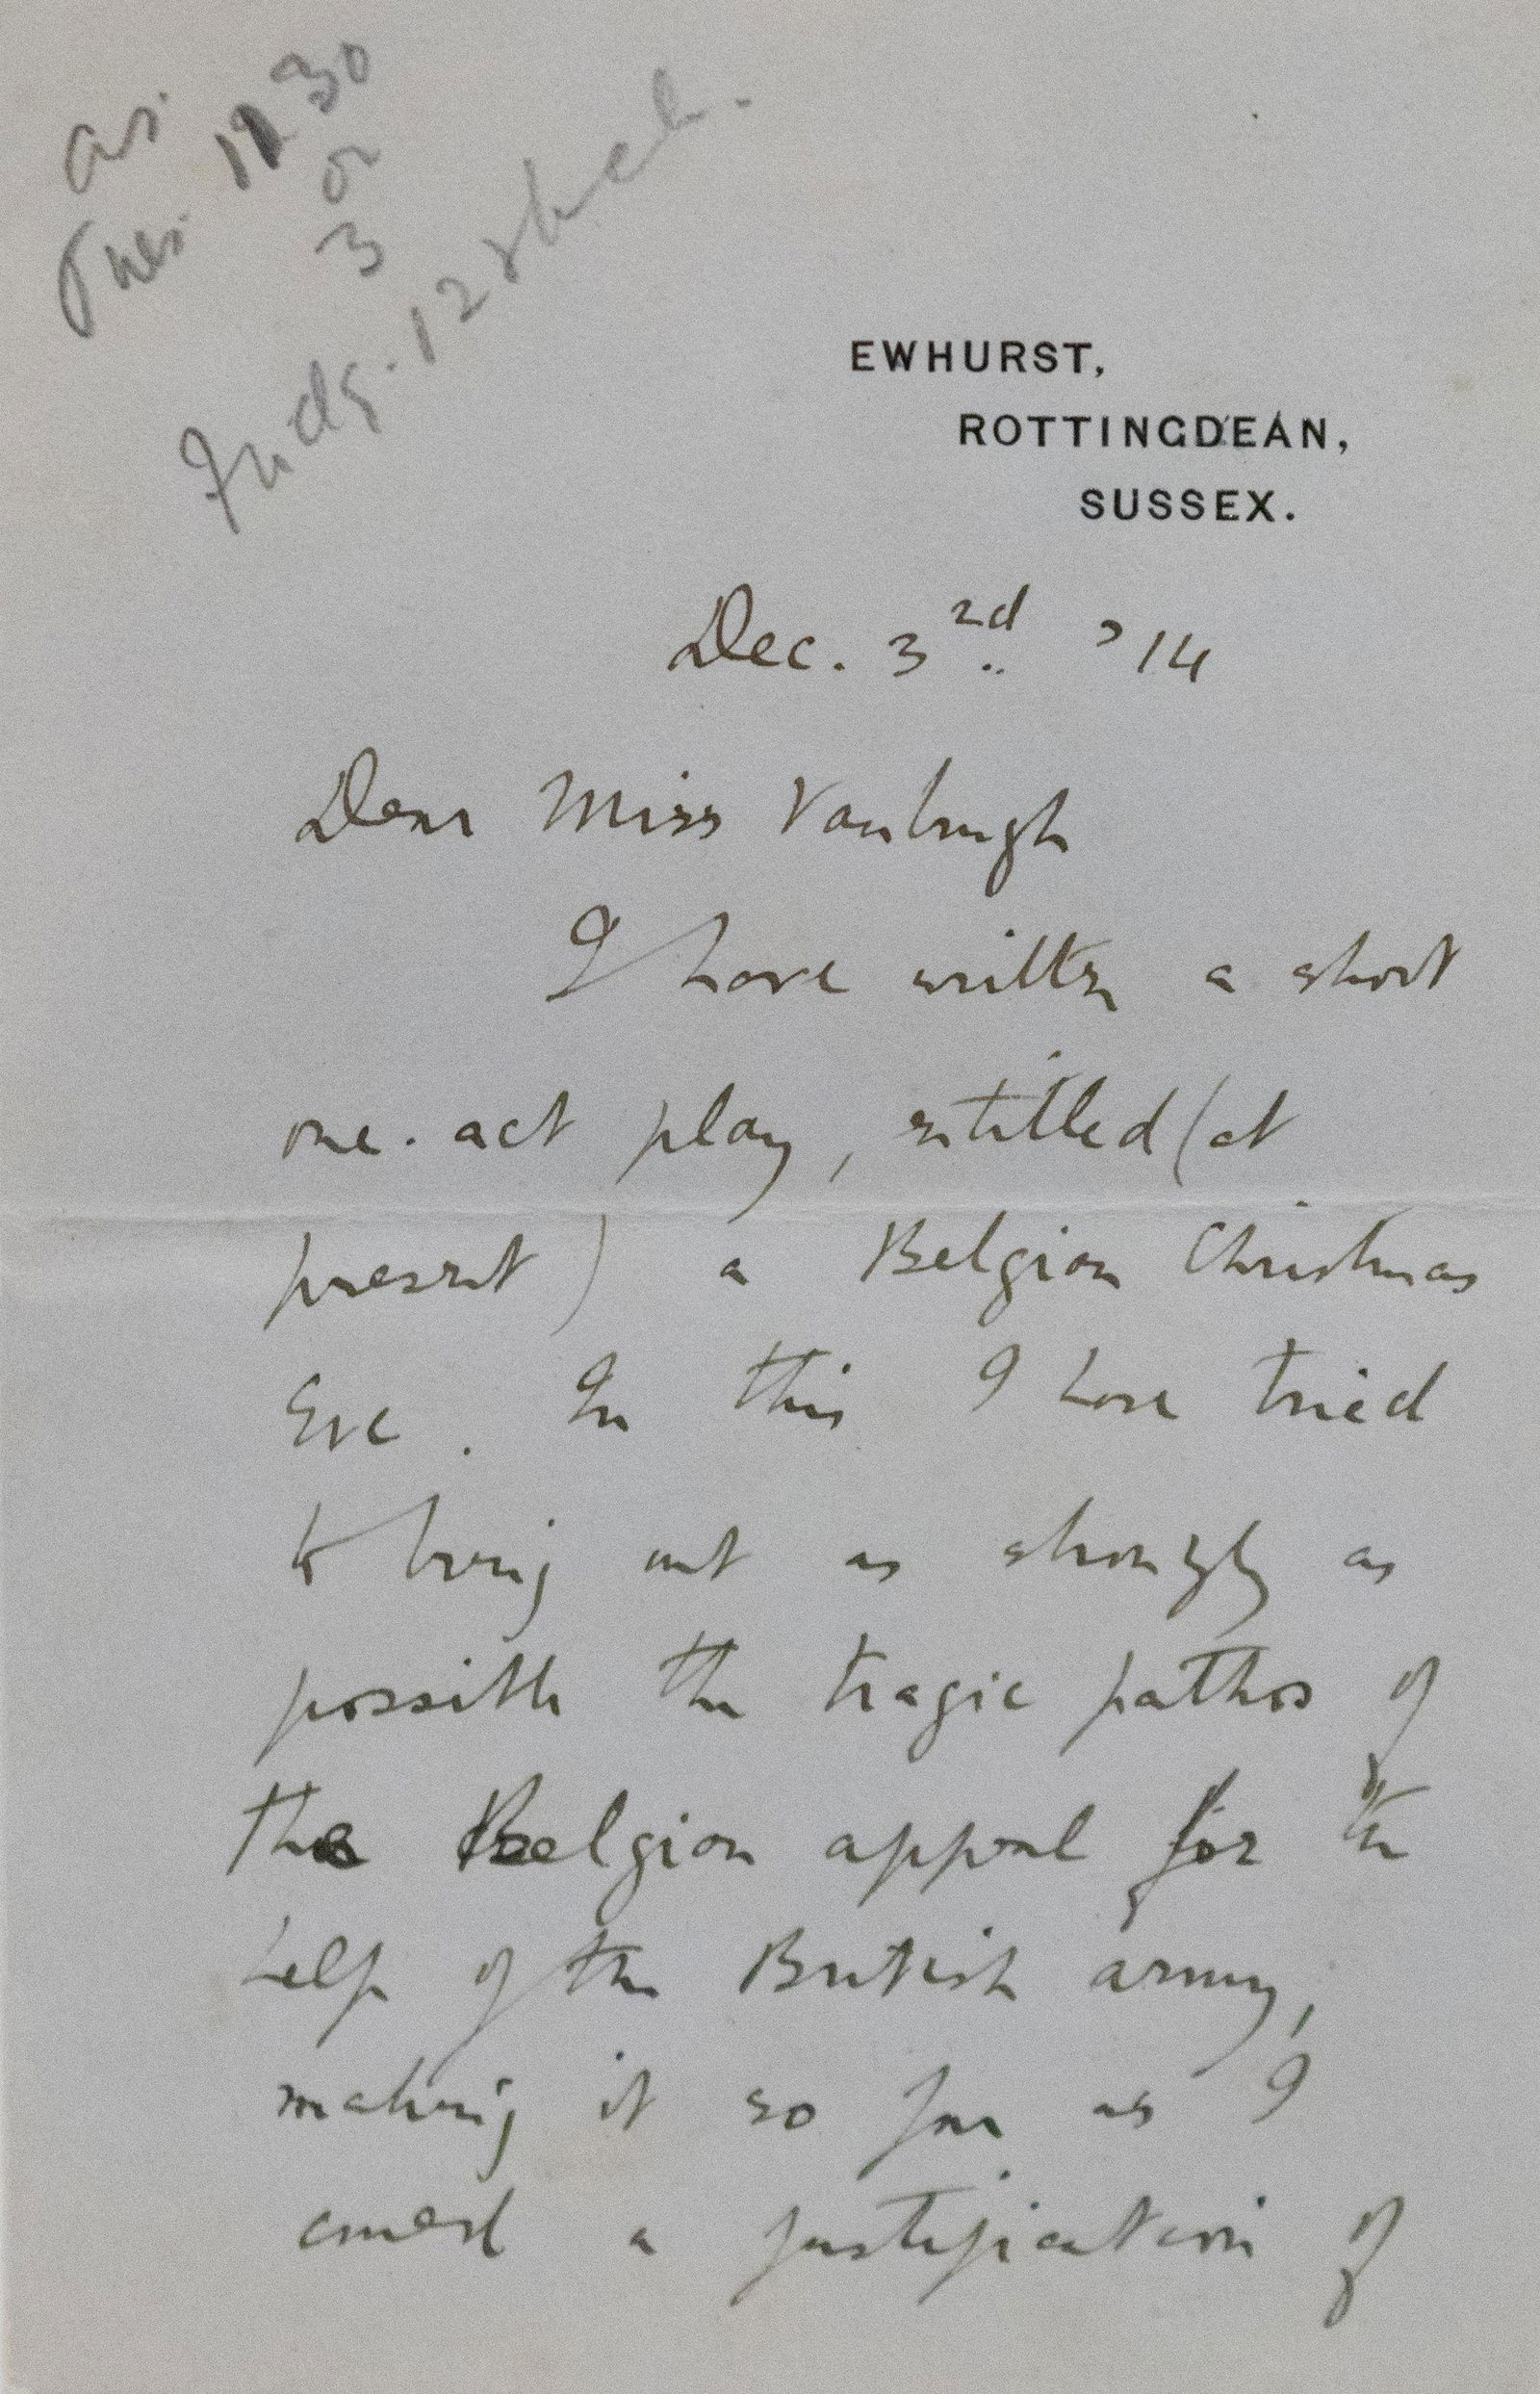 as.
Tues. 12 30
or
3
Frdy. 12 o'k
EWHURST,
ROTTINGDEAN,
SUSSEX.
Dec. 3rd '14
Dear Miss Vanbrugh
I have written a short
one. act play, entitled (at
present) a Belgian Christmas
Eve. In this I have tried
to bring out as strongly as
possible the tragic pathos of
the Belgian appeal for the
help of the British army,
making it so far as I
could a justification of